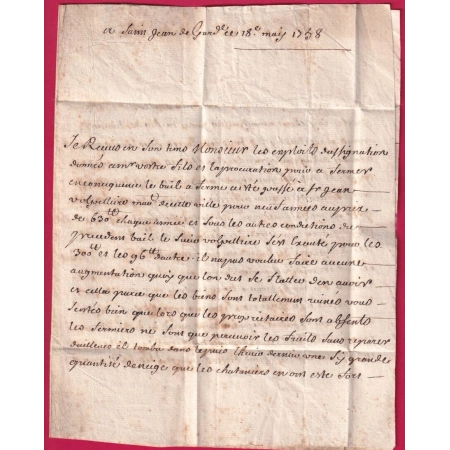 a Saint Jean de Gard.e ce 18.e may 1738
Je Reçus en son tems Monsieur les exploits dassignation
donnés a mr votre fils et la procuration pour a fermer
en consequance le bail a ferme a esté passé a sr Jean
volpelliere mar.d de cette ville pour neuf années au prix
de 630lt chaque année et sous les autres conditions du
precedent bail le sieur volpelliere sen
300lt et les 96lt dautre il na pas voulue faire aucune
augmentation quoy que lon dut se flatter den avoir
et cella parce que les biens sont totallement ruinés vous
sentés bien que lors que les proprietaires sont absents
les fermiers ne font que percevoir les fruits sans reparer
dailleurs il tomba dans le païs lhiver dernier une sy grande
quantité de neige que les chataniers en ont esté fort